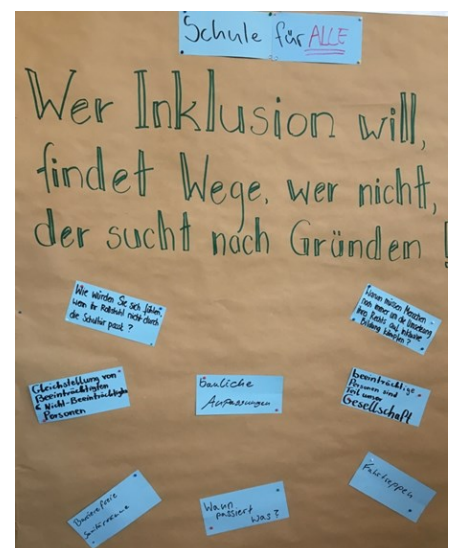 Schule für ALLE
Wer Inklusion will,
findet Wege, wer nicht,
der sucht nach Gründen !
Wie würden Sie sich fühlen,
wenn ihr Rollstuhl nicht durch
die Schultür passt ?
Warum müssen Menschen
noch immer um die Umsetzung
ihres Rechts auf inklusive
Bildung kämpfen ?
Gleichstellung von
Beeinträchtigten
& Nicht-Beeinträchtigten
Personen
bauliche
Anpassungen
beeinträchtigte
Personen sind
Teil unser
Gesellschaft
Barrierefreie
Sanitärräume
Wann
passiert
Was ?